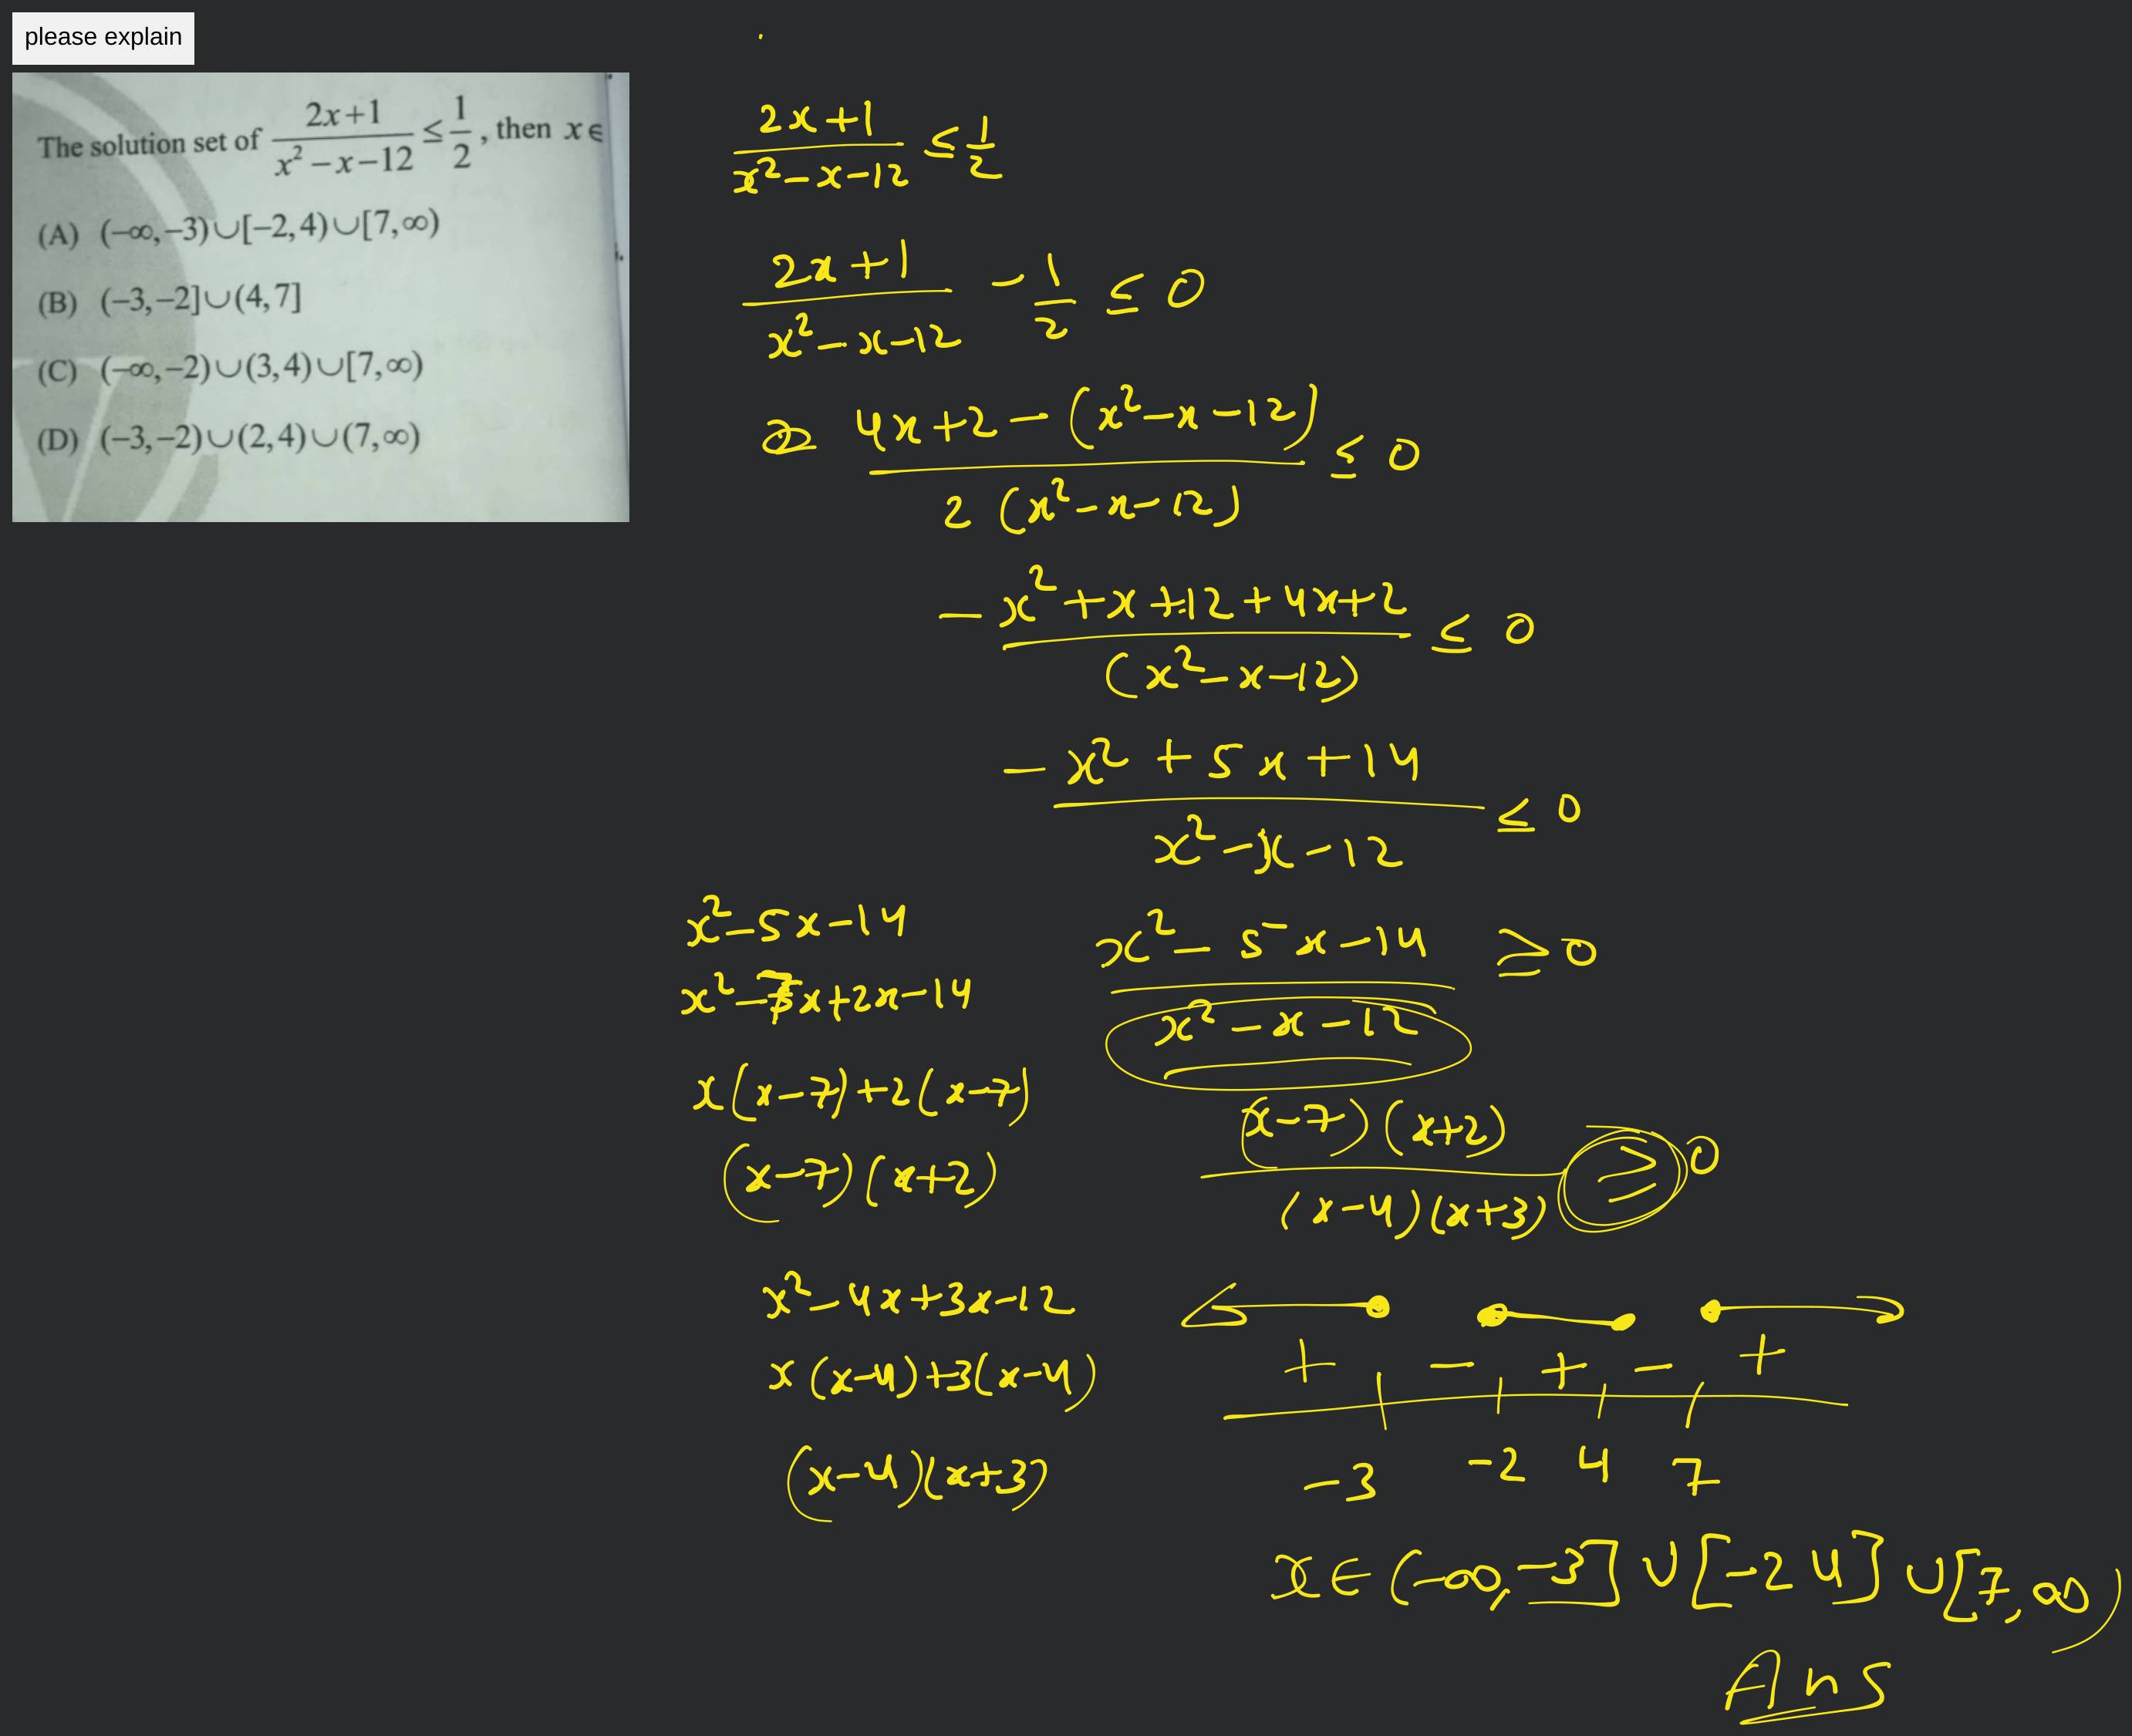 please explain
The solution set of (2x+1)/(x² − x − 12) ≤ 1/2 , then x ∈
(A) (−∞, −3) ∪ [−2, 4) ∪ [7, ∞)
(B) (−3, −2] ∪ (4, 7]
(C) (−∞, −2) ∪ (3, 4) ∪ [7, ∞)
(D) (−3, −2) ∪ (2, 4) ∪ (7, ∞)
(2x+1)/(x²−x−12) ≤ 1/2
(2x+1)/(x²−x−12) − 1/2 ≤ 0
(4x+2−(x²−x−12))/(2(x²−x−12)) ≤ 0
(−x²+x+12+4x+2)/(x²−x−12) ≤ 0
(−x²+5x+14)/(x²−x−12) ≤ 0
x²−5x−14
x²−7x+2x−14
x(x−7)+2(x−7)
(x−7)(x+2)
(x²−5x−14)/(x²−x−12) ≥ 0
((x−7)(x+2))/((x−4)(x+3)) ≥ 0
x²−4x+3x−12
x(x−4)+3(x−4)
(x−4)(x+3)
+ − + − +
−3 −2 4 7
x ∈ (−∞, −3] ∪ [−2 4] ∪ [7, ∞)
Ans